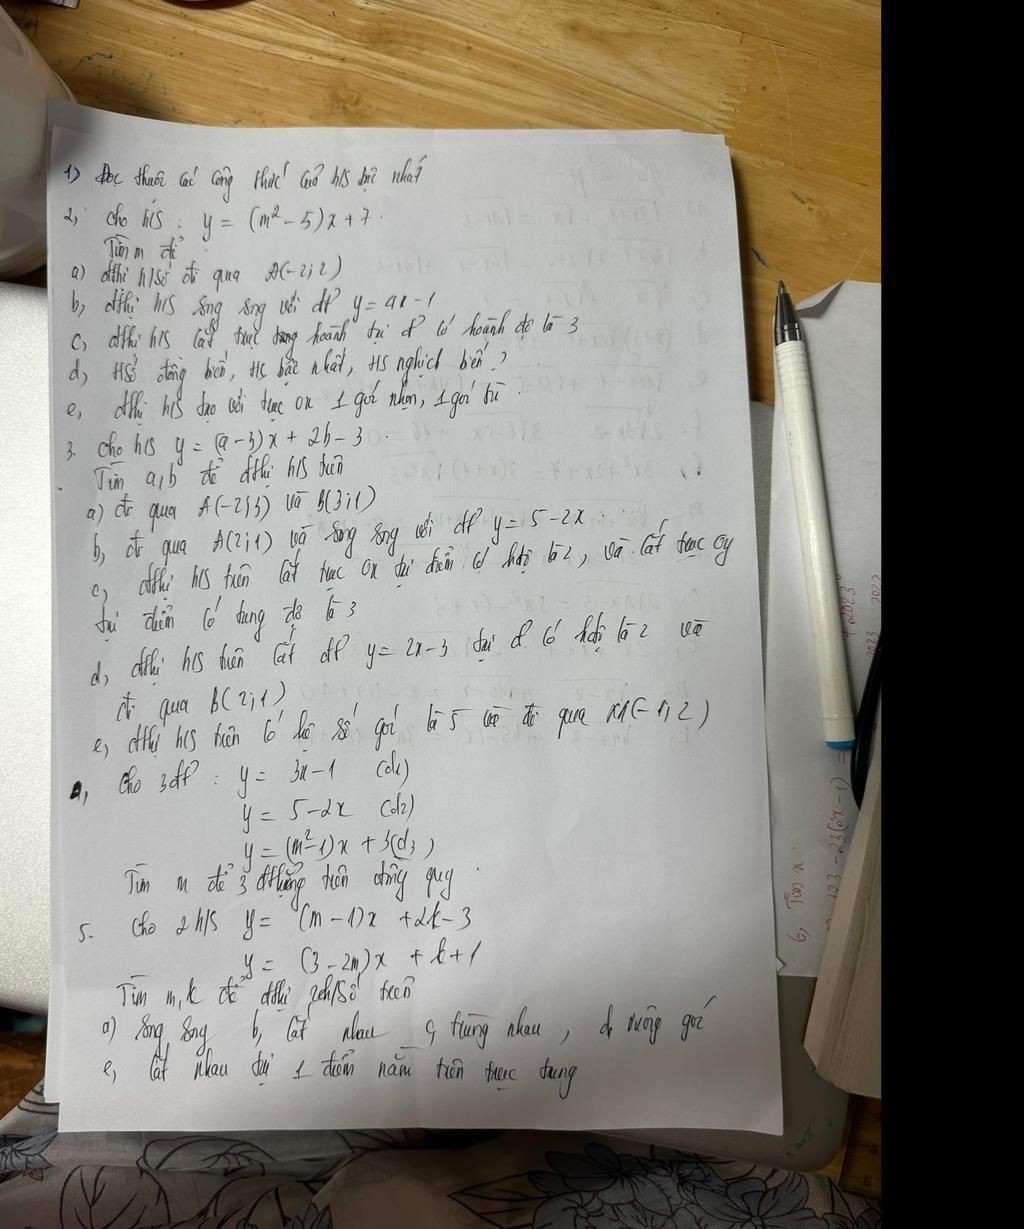 1) Đọc thuộc các công thức của h/s bậc nhất
2, Cho h/s : y = (m² - 5)x + 7.
Tìm m để :
a) đthị h/số đi qua A(-2; 2)
b, đthị h/s sng sng với đt y = ax - 1
c, đthị h/s cắt trục hoành tại đ có hoành độ là 3
d, HSố đồng biến, HS bậc nhất, HS nghịch biến ?
e, đthị h/s tạo với trục ox 1 góc nhọn, 1 góc tù
3. Cho h/s y = (a - 3)x + 2b - 3.
Tìm a, b để đthị h/s trên
a) đi qua A(-2; 3) và B(3; 1)
b, đi qua A(2; 1) và sng sng với đt y = 5 - 2x.
c, đthị h/s trên cắt trục ox tại điểm có hđộ là 2, và cắt trục oy
tại điểm có tung độ là 3
d, đthị h/s trên cắt đt y = 2x - 3 tại đ có hđộ là 2 và
đi qua B(2; 1)
e, đthị h/s trên có hệ số góc là 5 và đi qua (-1; 2)
4, Cho 3 đt : y = 3x - 1 (d1)
y = 5 - 2x (d2)
y = (m² - 1)x + 3 (d3)
Tìm m để 3 đthẳng trên đồng quy.
5. Cho 2 h/s y = (m - 1)x + 2k - 3
y = (3 - 2m)x + k + 1
Tìm m, k để đthị 2 h/số trên
a) Sng Sng b, Cắt nhau c, trùng nhau, d, vuông góc
e, Cắt nhau tại 1 điểm nằm trên trục tung
6, Tìm x.